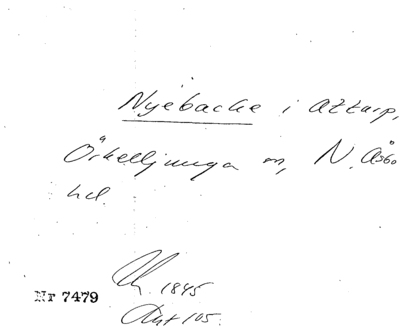 Nyebacke i Attarp,
Örkelljunga sn, N. Åsbo
hd.
1845
Nr 7479
Akt 105.